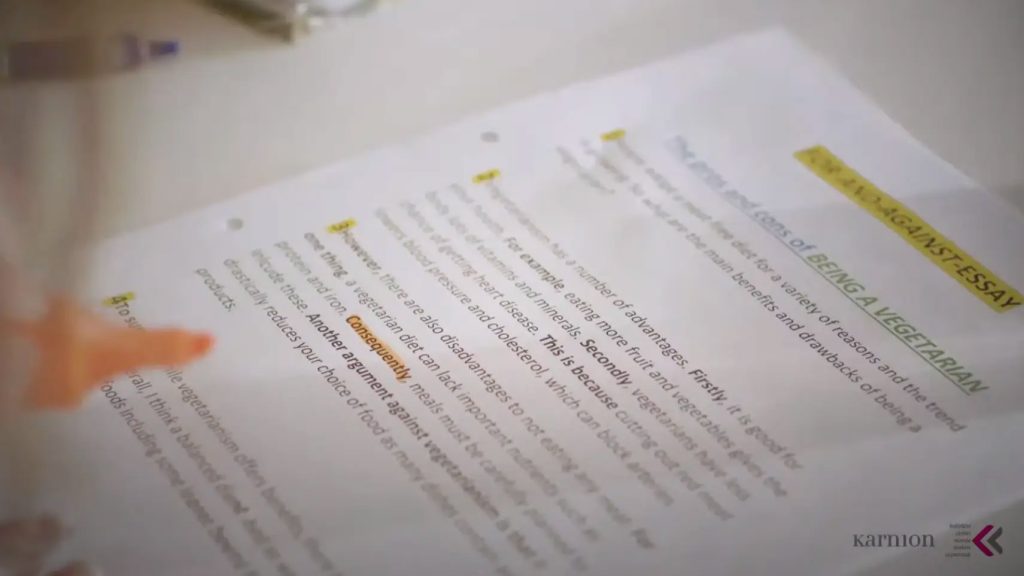 FOR AND AGAINST ESSAY
The pros and cons of BEING A VEGETARIAN
1 adopt a meat free diet for a variety of reasons and the trend
what are the main benefits and drawbacks of being a
2 Vegetarianism has a number of advantages. Firstly, it is good for
For example, eating more fruit and vegetables gives the
body lots of vitamins and minerals. Secondly, vegetarians have less
chance of getting heart disease. This is because cutting out red meat
lowers blood pressure and cholesterol, which can block arteries
3 However, there are also disadvantages to not eating any meat. For
one thing, a vegetarian diet can lack important nutrients such as
protein and iron. Consequently, meals must be carefully planned to
include these. Another argument against vegetarianism is that it
drastically reduces your choice of food as many dishes contain
products.
4 To
while vegetarianism offers benefits, there
I think a balanced diet
foods including some
karnion